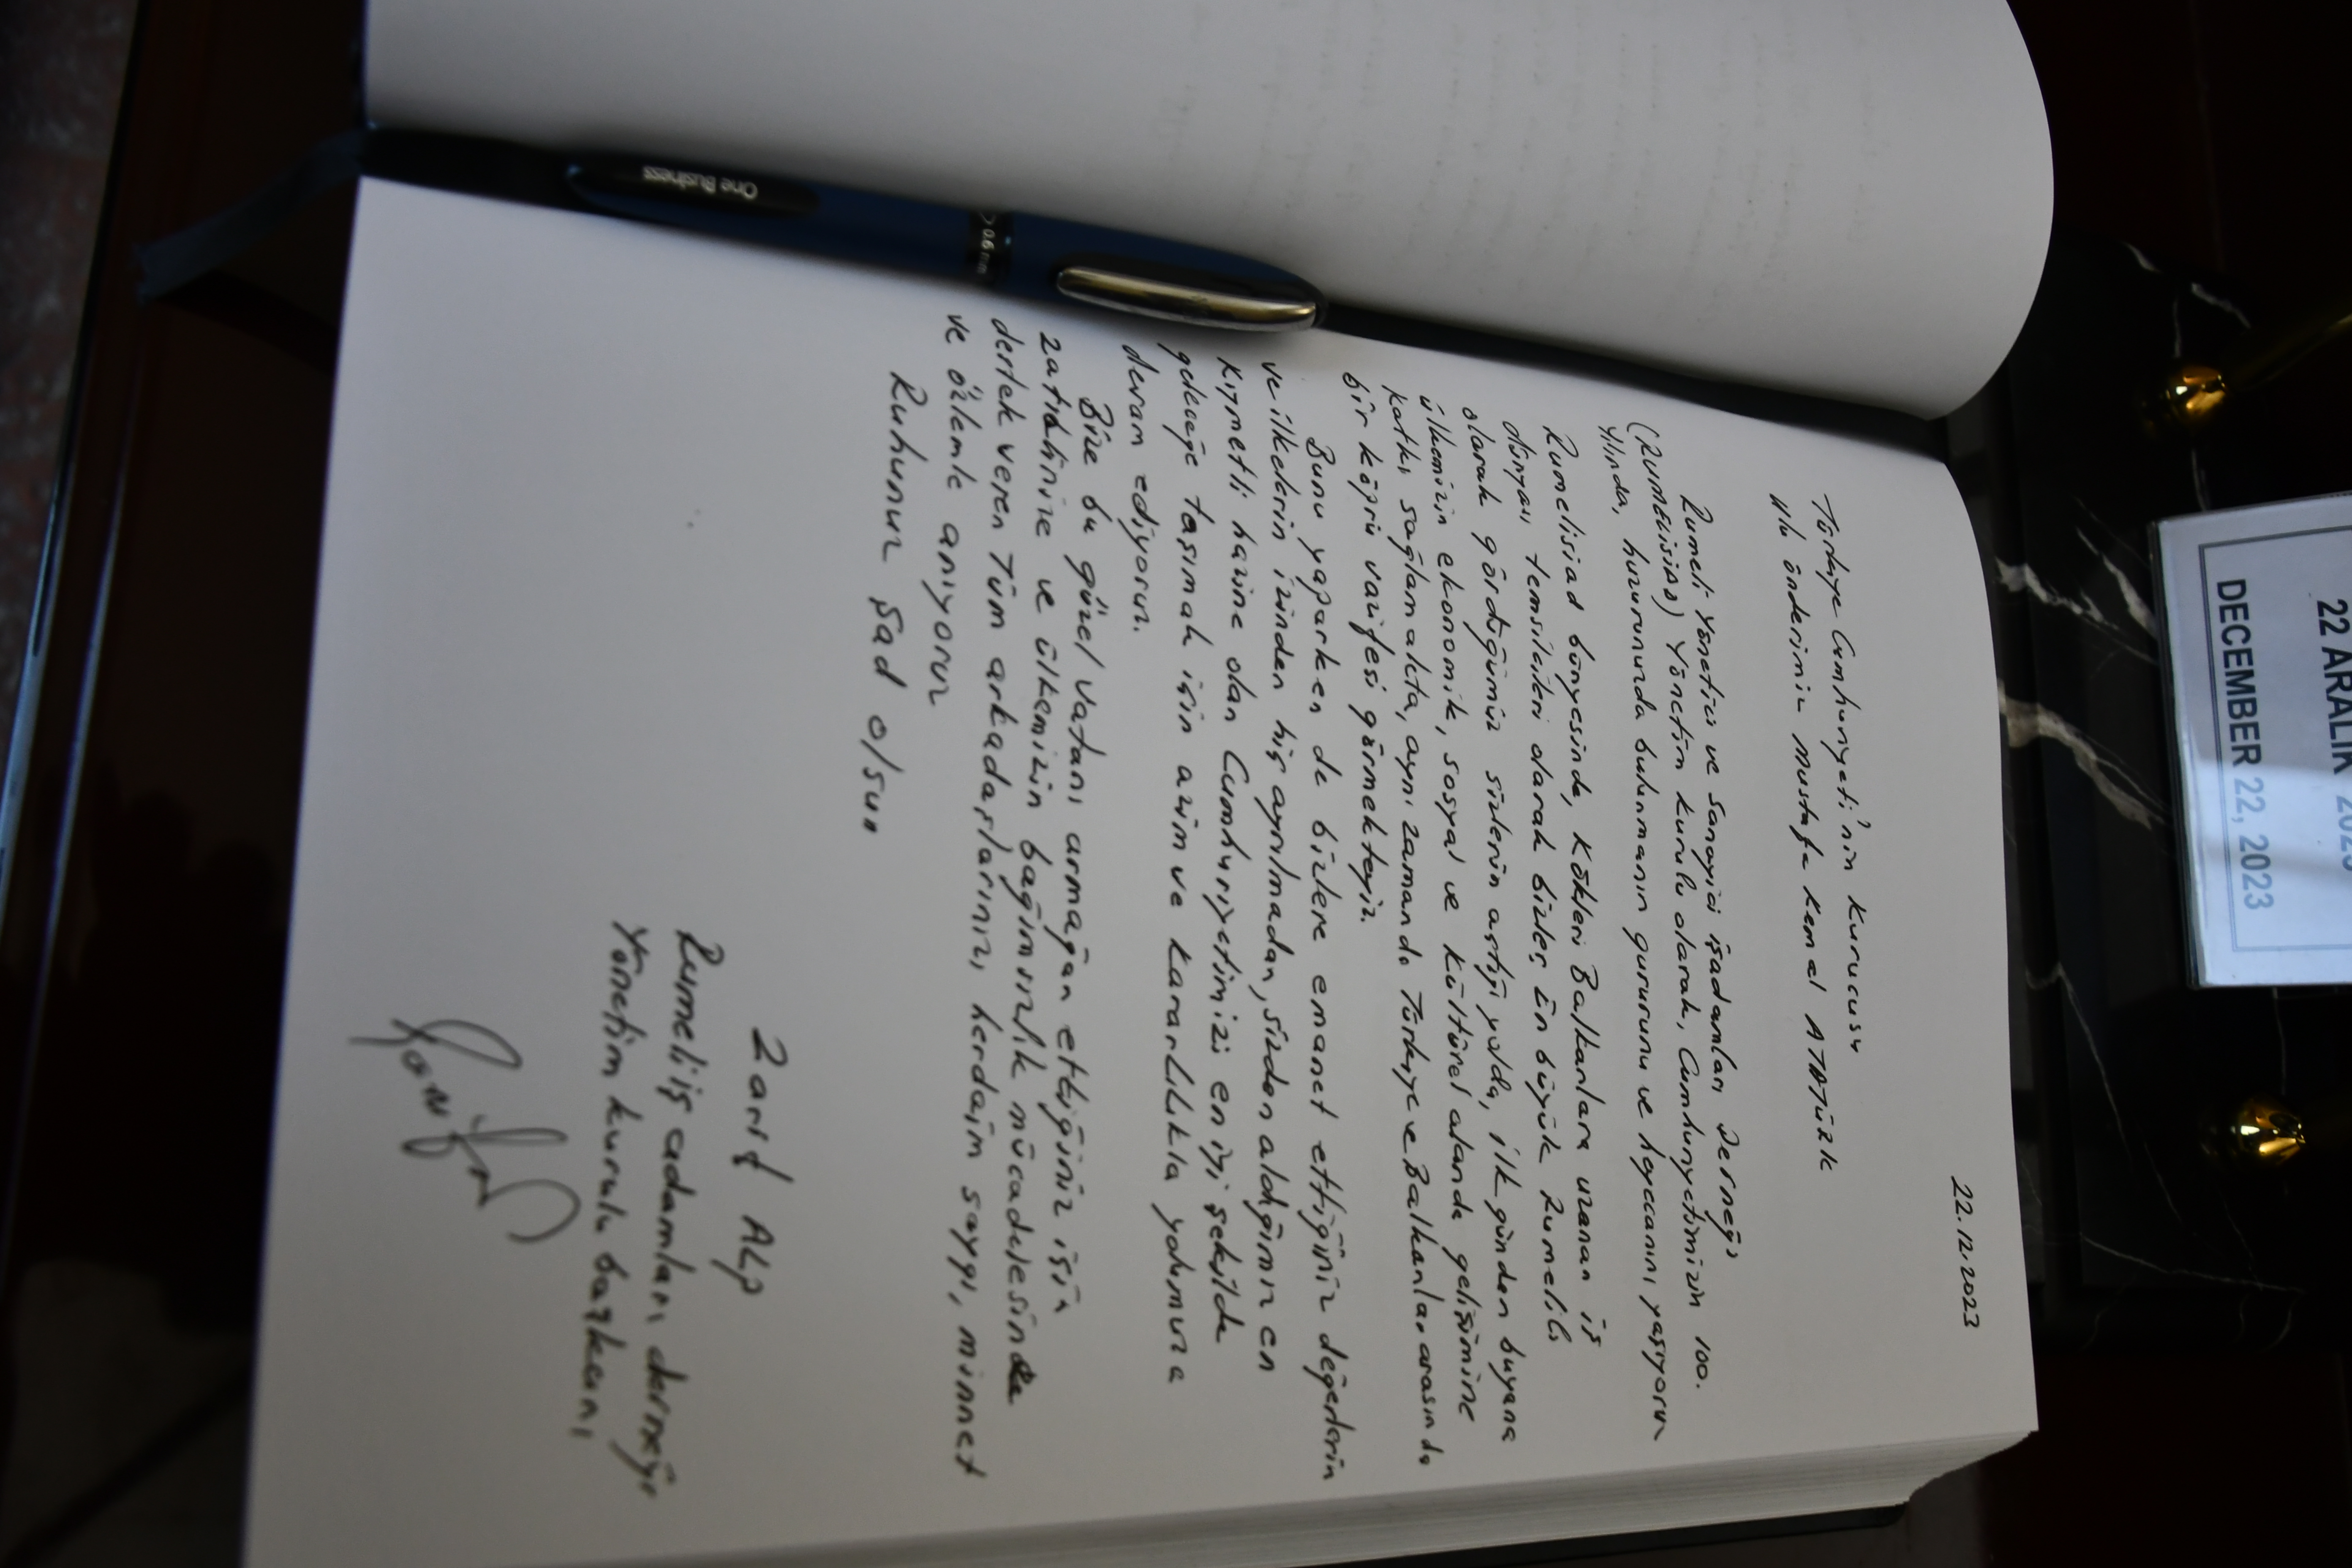 22.12.2023
Türkiye Cumhuriyeti'nin kurucusu
Ulu önderimiz Mustafa Kemal ATATÜRK
Rumeli Yönetici ve Sanayici İşadamları Derneği
(RUMELİSİAD) Yönetim kurulu olarak, Cumhuriyetimizin 100.
Yılında, huzurunuzda bulunmanın gururunu ve heyecanını yaşıyoruz
Rumelisiad bünyesinde, kökleri Balkanlara uzanan iş
dünyası temsilcileri olarak bizler, en büyük Rumelili
olarak gördüğümüz sizlerin açtığı yolda, ilk günden buyana
ülkemizin ekonomik, sosyal ve kültürel alanda gelişimine
katkı sağlamakta, aynı zamanda Türkiye ve Balkanlar arasında
bir köprü vazifesi görmekteyiz.
Bunu yaparken de bizlere emanet ettiğiniz değerlerin
ve ilkelerin izinden hiç ayrılmadan, sizden aldığımız en
kıymetli hazine olan Cumhuriyetimizi en iyi şekilde
geleceğe taşımak için azim ve kararlılıkla yolumuza
devam ediyoruz.
Bize bu güzel vatanı armağan ettiğiniz için
zatıalinize ve ülkemizin bağımsızlık mücadelesinde
destek veren tüm arkadaşlarınızı herdaim saygı, minnet
ve özlemle anıyoruz
Ruhunuz Şad olsun
Zarif ALP
Rumeli iş adamları derneği
Yönetim kurulu başkanı
One Business
0.6 mm
22 ARALIK 2023
DECEMBER 22, 2023